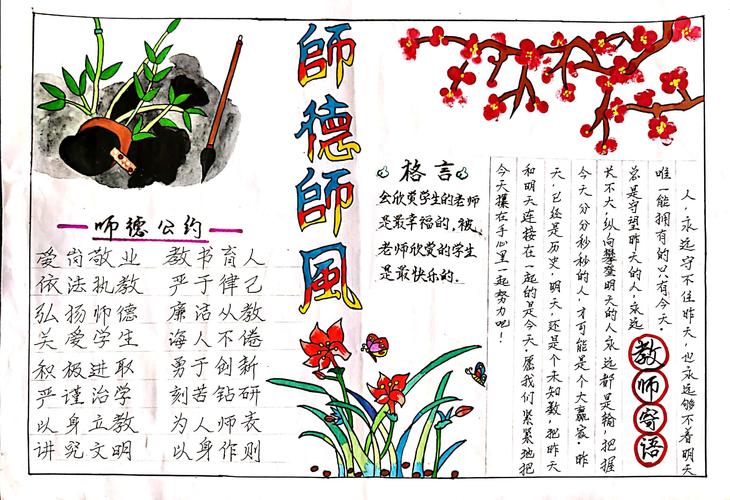 師德師風
师德公约
爱岗敬业 教书育人
依法执教 严于律己
弘扬师德 廉洁从教
关爱学生 诲人不倦
积极进取 勇于创新
严谨治学 刻苦钻研
以身立教 为人师表
讲究文明 以身作则
格言
会欣赏学生的老师
是最幸福的,被
老师欣赏的学生
是最快乐的.
教师寄语
人,永远守不住昨天,也永远够不着明天
唯一能拥有的只有今天。
总是守望昨天的人,永远
长不大,纵向攀登明天的人永远都是输,把握
今天分分秒秒的人,才可能是个大赢家。昨
天,已经是历史,明天,还是个未知数,把昨天
和明天连接在一起的是今天,愿我们紧紧地把
今天攥在手心里一起努力吧!